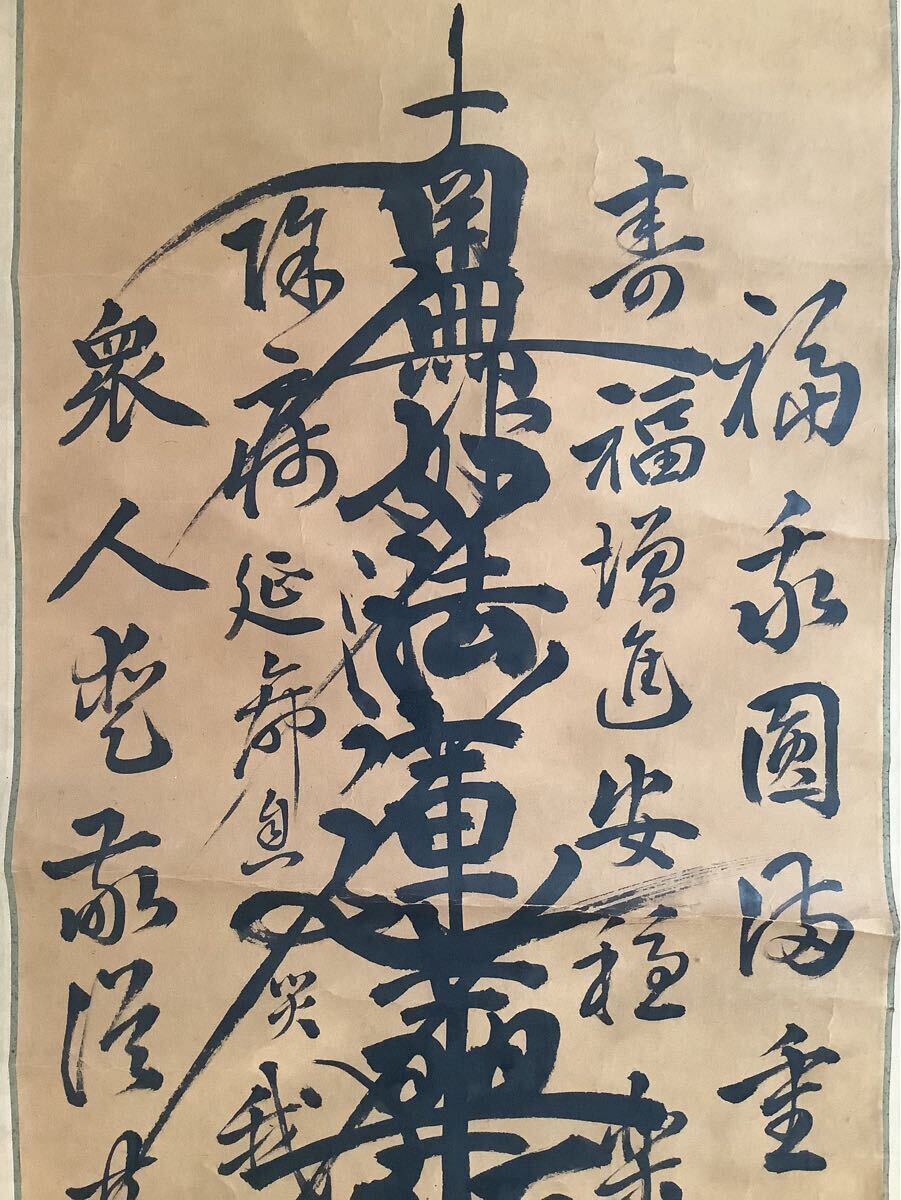 福聚圓満重
寿福増進安穏楽
南無妙法蓮華
除病延命息災我
衆人愛敬従